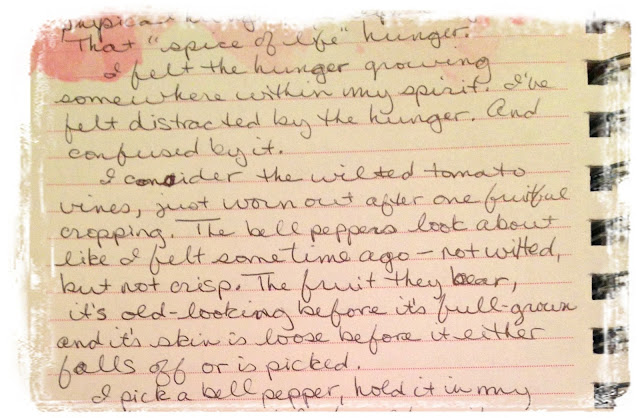 That "spice of life" hunger.
I felt the hunger growing
somewhere within my spirit. I've
felt distracted by the hunger. And
confused by it.
I consider the wilted tomato
vines, just worn out after one fruitful
cropping. The bell peppers look about
like I felt sometime ago - not wilted,
but not crisp. The fruit they bear,
it's old-looking before it's full-grown
and it's skin is loose before it either
falls off or is picked.
I pick a bell pepper, hold it in my